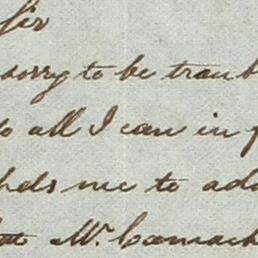 Sir
sorry to be troub
do all I can in p
me to add
Mr. Comack